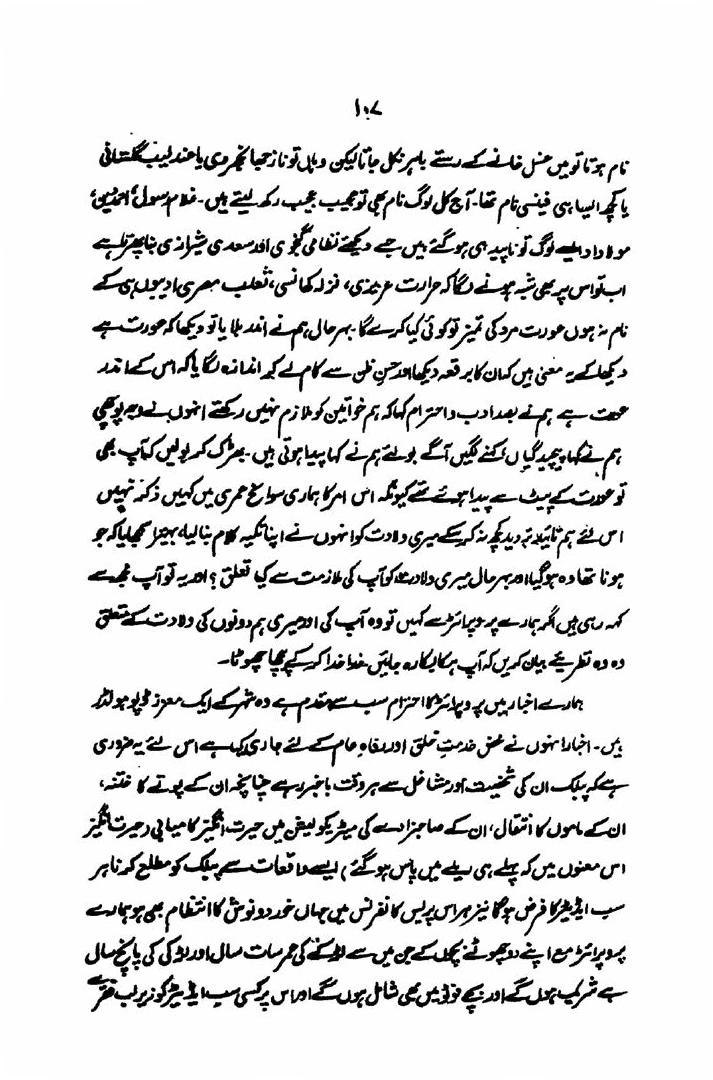 ۱۰۷
نام ہوتا تو میں غسل خانے کے رستے باہر نکل جاتا لیکن وہاں تو ناز جیا نجوردی یا عندلیب گلستانی
یا کچھ ایسا ہی فینسی نام تھا۔ آج کل لوگ نام بھی تو عجیب عجیب رکھ لیتے ہیں۔ غلام رسول، احمد دین،
مولا داد ایسے لوگ تو ناپید ہی ہو گئے ہیں جسے دیکھئے نظامی گنجوی اور سعدی شیرازی بنا پھرتا ہے
اب تو اس پر بھی شبہ ہونے لگا کہ حرارت عزیزی، نزلہ کھانسی، ثعلب مصری ادیبوں ہی کے
نام نہ ہوں عورت مرد کی تمیز تو کوئی کیا کرے گا۔ بہرحال ہم نے اندر بلایا تو دیکھا کہ عورت ہے
دیکھا کے یہ معنی ہیں کہ ان کا برقعہ دیکھا اور حسن ظن سے کام لے کر اندازہ لگایا کہ اس کے اندر
عورت ہے ہم نے بصد ادب و احترام کہا کہ ہم خواتین کو ملازم نہیں رکھتے انہوں نے وجہ پوچھی
ہم نے کہا پیچیدگیاں، کہنے لگیں آگے بولئے ہم نے کہا پیدا ہوتی ہیں۔ بھڑک کر بولیں کہ آپ بھی
تو عورت کے پیٹ سے پیدا ہوئے تھے کیونکہ اس امر کا ہماری سوانح عمری میں کہیں ذکر نہیں
اس لئے ہم تائید تردید کچھ نہ کر سکے میری ولادت کو انہوں نے اپنا تکیہ کلام بنا لیا بہتیرا سمجھایا کہ جو
ہونا تھا وہ ہو گیا اور بہرحال میری ولادت کو آپ کی ملازمت سے کیا تعلق؟ اور یہ تو آپ مجھ سے
کہہ رہی ہیں اگر ہمارے پروپرائٹر سے کہیں تو وہ آپ کی اور میری ہم دونوں کی ولادت کے متعلق
وہ وہ نظریے بیان کریں کہ آپ ہکا بکا رہ جائیں خدا خدا کر کے پیچھا چھوٹا۔
ہمارے اخبار میں پروپرائٹر کا احترام سب سے مقدم ہے وہ شہر کے ایک معزز ڈپو ہولڈر
ہیں۔ اخبار انہوں نے محض خدمت خلق اور رفاہ عام کے لئے جاری کیا ہے اس لئے یہ ضروری
ہے کہ پبلک ان کی شخصیت اور مشاغل سے ہر وقت باخبر رہے چنانچہ ان کے پوتے کا ختنہ،
ان کے ماموں کا انتقال، ان کے صاحبزادے کی میٹریکولیشن میں حیرت انگیز کامیابی (حیرت انگیز
اس معنوں میں کہ پہلے ہی ریلے میں پاس ہو گئے) ایسے واقعات سے پبلک کو مطلع کرنا ہر
سب ایڈیٹر کا فرض ہوگا نیز ہر اس پریس کانفرنس میں جہاں خورد و نوش کا انتظام بھی ہو ہمارے
پروپرائٹر مع اپنے دو چھوٹے بچوں کے جن میں سے لڑکے کی عمر سات سال اور لڑکی کی پانچ سال
ہے شریک ہوں گے اور بچے فوٹو میں بھی شامل ہوں گے اور اس پر کسی سب ایڈیٹر کو زیر لب فقرے